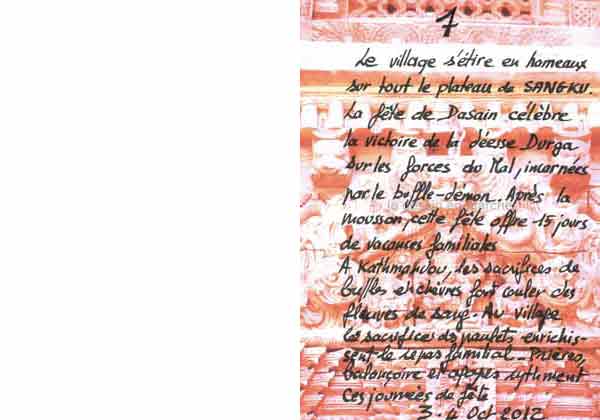 7
Le village s'étire en hameaux
sur tout le plateau de SANGKU.
La fête de Dasain célèbre
la victoire de la déesse Durga
sur les forces du Mal, incarnées
par le buffle-démon. Après la
mousson, cette fête offre 15 jours
de vacances familiales
A Kathmandou, les sacrifices de
buffles et chèvres font couler des
fleuves de sang. Au village
les sacrifices de poulets enrichis-
sent le repas familial - Prières,
balançoire et rythment
ces journées de fête
Oct 2012